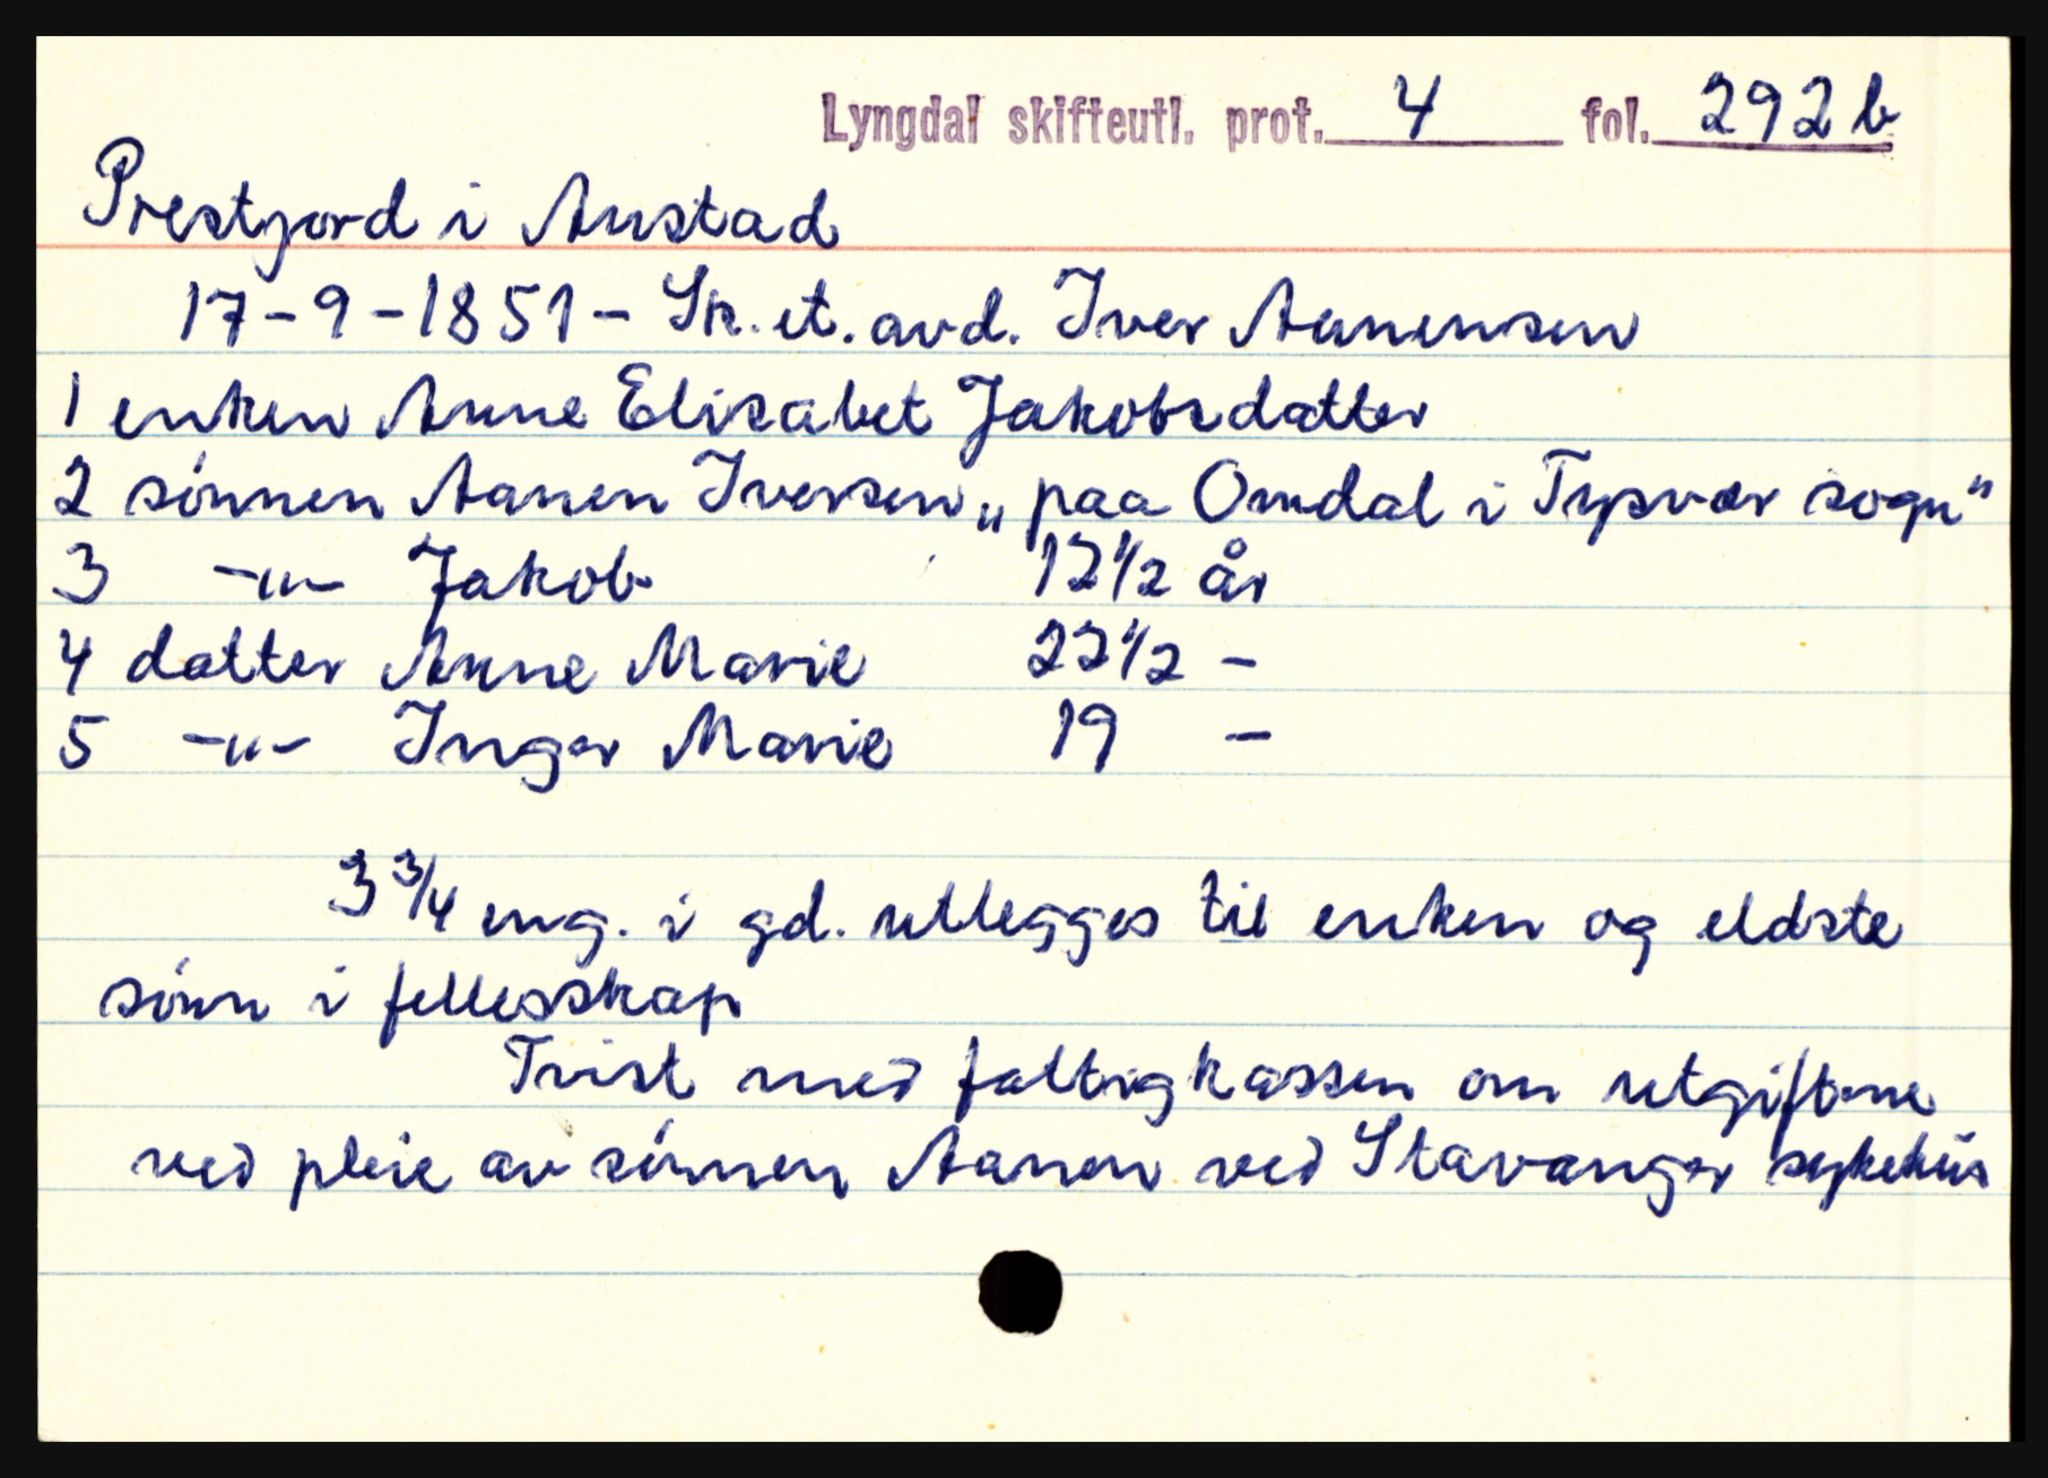 Lyngdal skifteutl. prot. 4 fol. 292 b
Prestjord i Austad
17-9-1851- Sk. et. avd. Iver Aanensen
1 enken Anne Elisabet Jakobsdatter
2 sønnen Aanen Iversen „paa Omdal i Tysvær sogn"
3 -"- Jakob 12 1/2 år
4 datter Anne Marie 22 1/2 -
5 -"- Inger Marie 19 -
3 3/4 eng. i gd. utlegges til enken og eldste
sønn i fellesskap
Tvist med fattigkassen om utgiftene
ved pleie av sønnen Aanen ved Stavanger sykehus